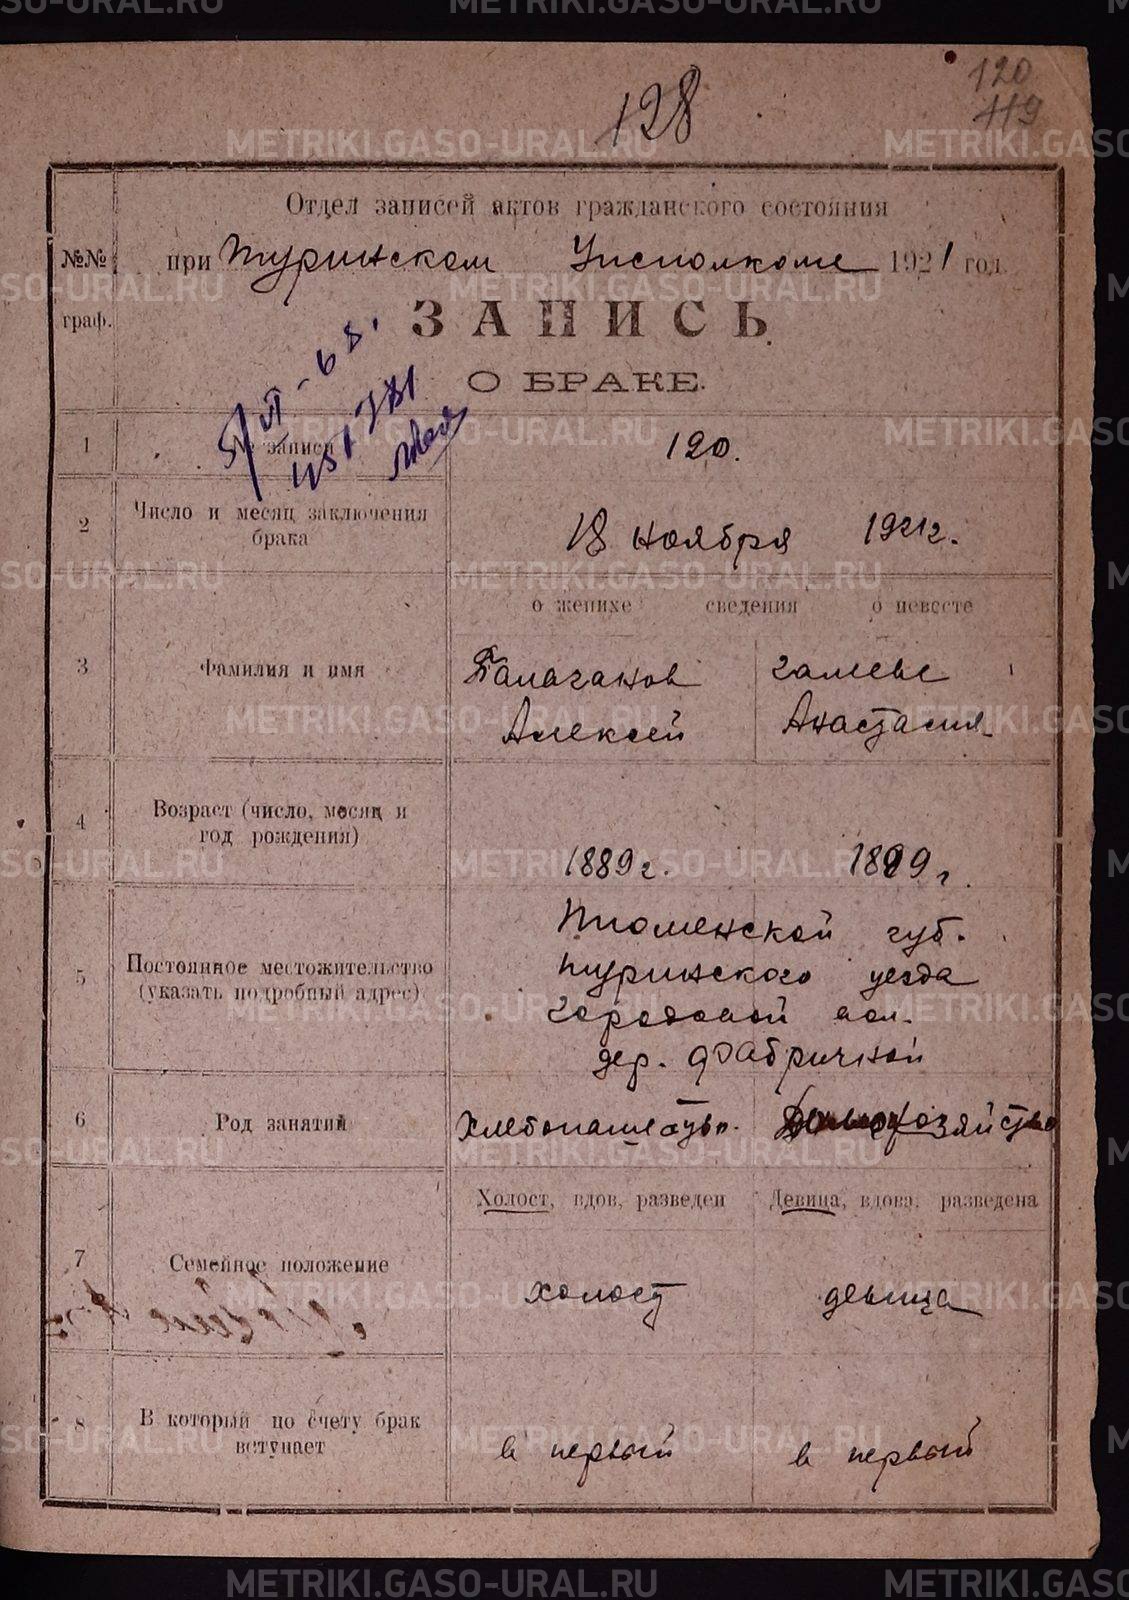 METRIKI.GASO-URAL.RU
128
120
119
Отдел записей актов гражданского состояния
№№ граф.
при Туринском Исполкоме 1921 год
ЗАПИСЬ
О БРАКЕ.
1 № записи 120.
2 Число и месяц заключения
брака
18 ноября 1921 г.
о женихе сведения о невесте
3 Фамилия и имя
Алексей Анастасия
4 Возраст (число, месяц и
год рождения)
1889 г. 1899 г.
5 Постоянное местожительство
(указать подробный адрес)
Тюменской губ.
Туринского уезда
Городовой вол.
дер. Фабричной
6 Род занятий
Хлебопашество. хозяйство
Холост, вдов, разведен Девица, вдова, разведена
7 Семейное положение
холост девица
8 В который по счету брак
вступает
в первый в первый